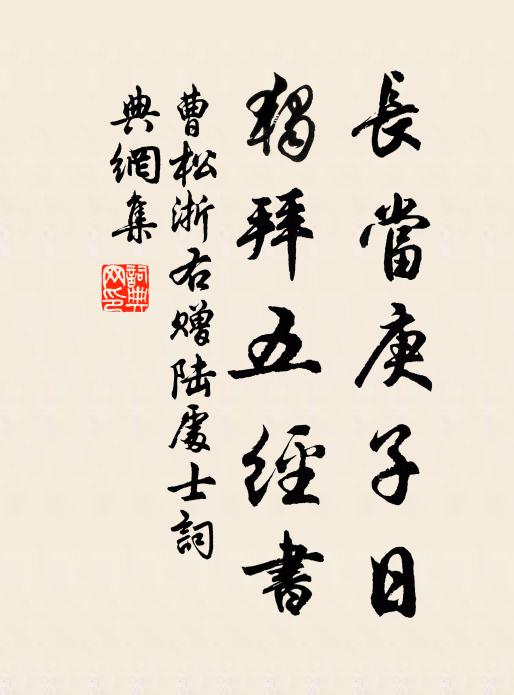 長當庚子日
獨拜五經書
曹松浙右贈陸處士詞
典網集
詞典
网印